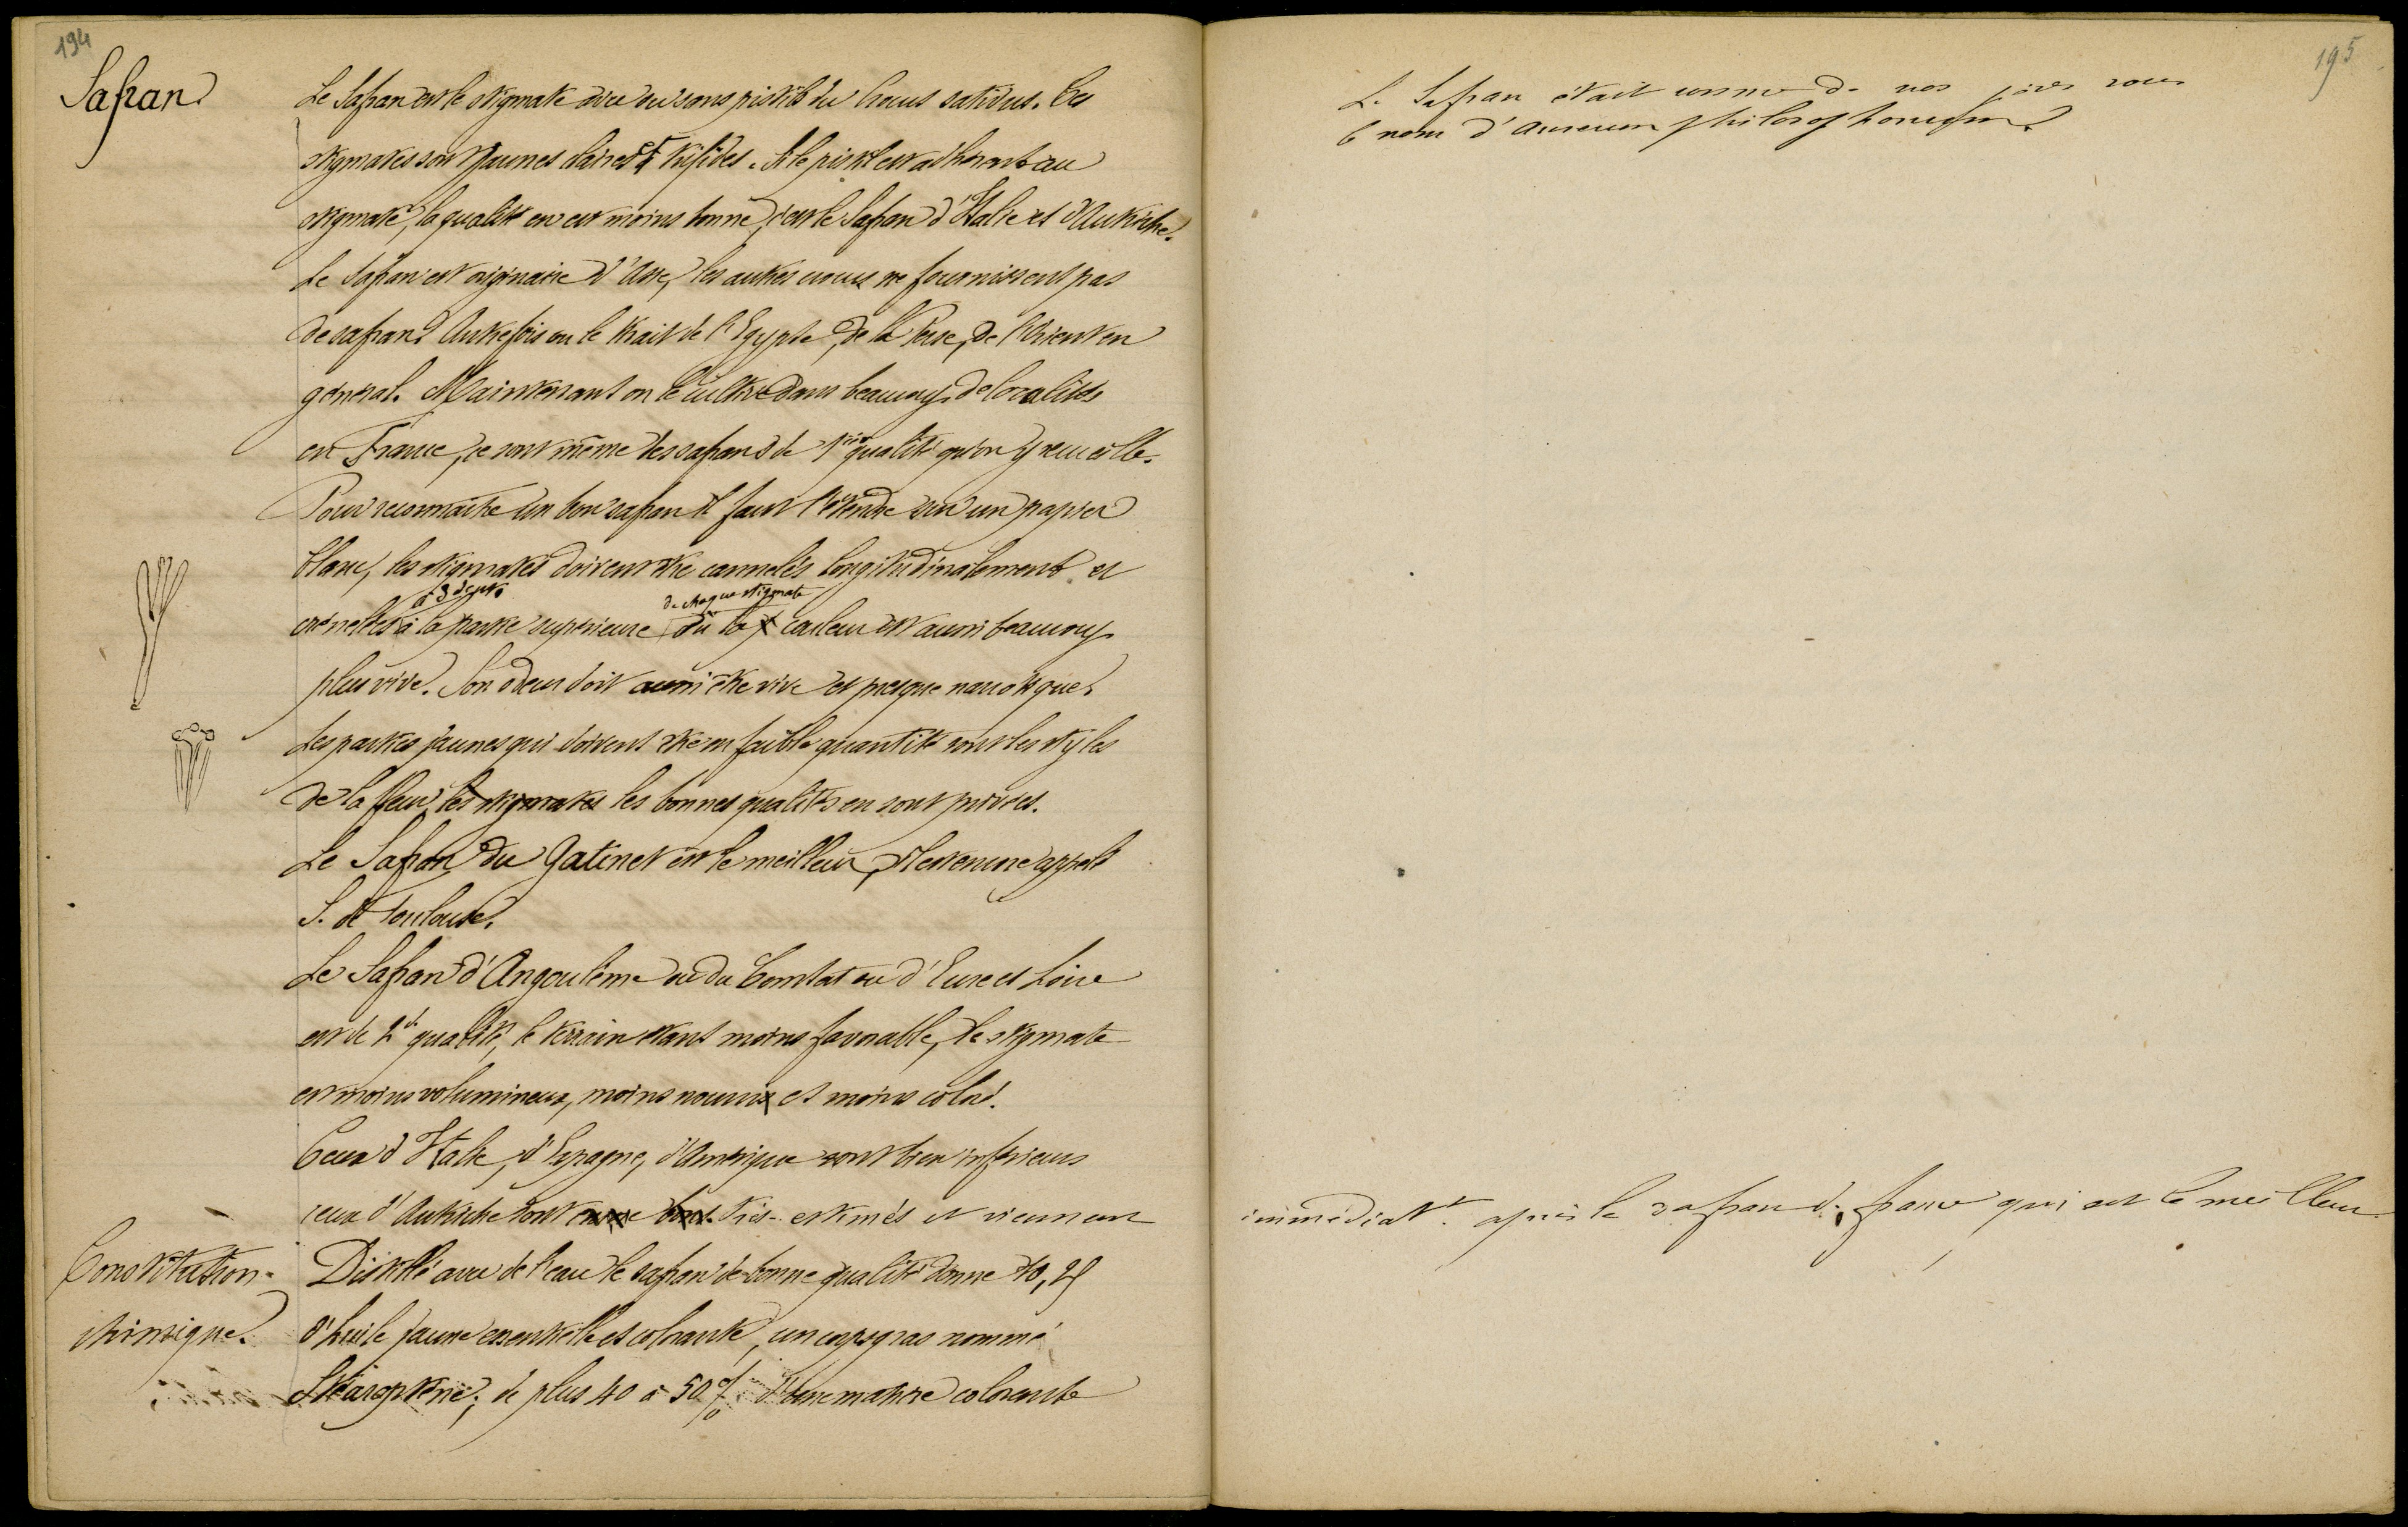 194
Safran
Le Safran est le stigmate avec ou sans pistil du Crocus sativus. Ces
stigmates sont jaunes clairs et trifides. Si le pistil est adhérent au
stigmate, la qualité en est moins bonne, c'est le Safran d'Italie et d'Autriche.
Le Safran est originaire d'Asie, les autres crocus ne fournissent pas
de safran. Autrefois on le tirait de l'Egypte, de la Perse, de l'Orient en
général. Maintenant on le cultive dans beaucoup de localités
en France, ce sont même des safrans de 1ère qualité qu'on y recueille.
Pour reconnaître un bon safran il faut l'étendre sur un papier
blanc, les stigmates doivent être cannelés longitudinalement et
à 3 dents
de chaque stigmate
crénelés à la partie supérieure où la couleur est aussi beaucoup
plus vive. Son odeur doit aussi être vive et presque narcotique.
Les parties jaunes qui doivent être en faible quantité sont les styles
de la fleur, les stigmates les bonnes qualités en sont privées.
Le Safran du Gatinet est le meilleur, il est encore appelé
S. de Toulouse.
Le Safran d'Angoulême ou du Comtat ou d'Eure et Loire
est de 2de qualité, le terrain étant moins favorable, le stigmate
est moins volumineux, moins nourri et moins coloré.
Ceux d'Italie, d'Espagne, d'Amérique sont bien inférieurs
ceux d'Autriche sont encore bons très-estimés et viennent
Constitution
chimique.
Distillé avec de l'eau le safran de bonne qualité donne 10,25
d'huile jaune essentielle et colorante, un corps gras nommé
Stéaroptène; de plus 40 à 50 % d'une matière colorante
195
Le Safran était connu de nos pères sous
le nom d'aurum philosophorum.
immédiatt. après le safran de france qui est le meilleur